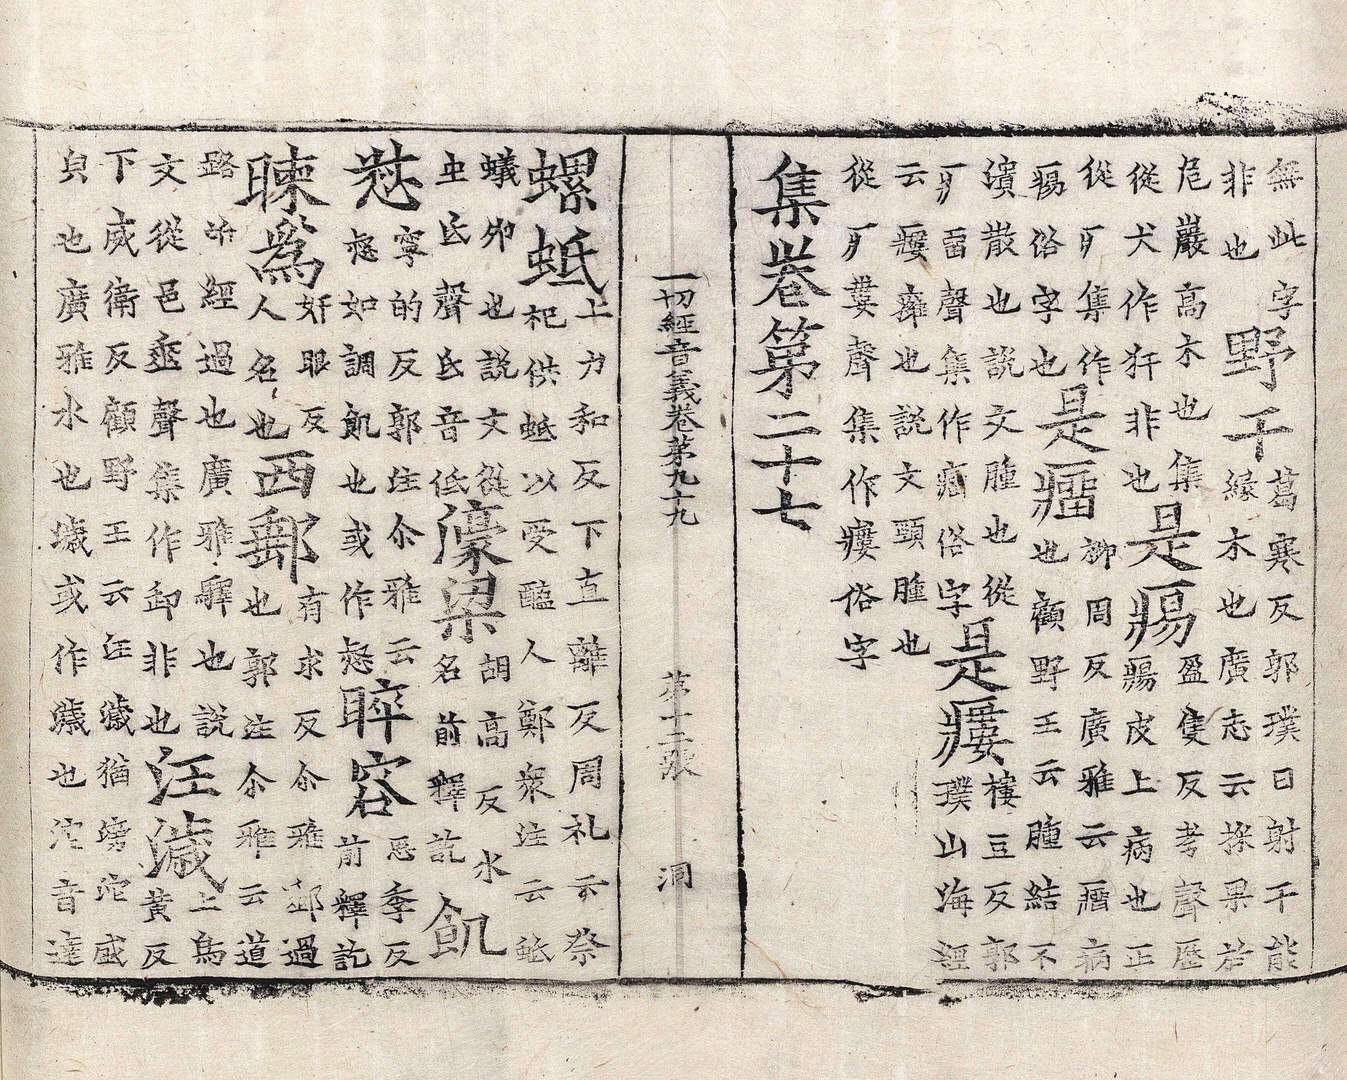 無此字
非也
野干
葛寒反郭璞曰射干能
縁木也廣志云採果於
危巖高木也集
從犬作犴非也
是瘍
盈隻反考聲歷
瘍皮上病也正
從疒集作
瘍俗字也
是瘤
柳周反廣雅云瘤病
也顧野王云腫結不
潰散也説文腫也從
疒畱聲集作瘤俗字
是瘻
樓豆反郭
璞山海經
云瘻癕也説文頸腫也
從疒婁聲集作瘻俗字
集卷第二十七
一切經音義卷第九十九 第十二張 洞
螺蚳
上力和反下直離反周礼云祭
祀供蚳以受醢人鄭衆注云蚳
蟻卵也説文從
虫氐聲氐音低
濠梁
胡高反水
名前釋訖
飢
惄
寧的反郭注尒雅云
惄如調飢也或作惄
睟容
恩季反
前釋訖
暕爲
奸眼反
人名也
西郵
有求反尒雅郵過
也郭注尒雅云道
路所經過也廣雅驛也説
文從邑垂聲集作卸非也
汪濊
上烏
黃反
下威衛反顧野王云汪濊猶滂沱盛
皃也廣雅水也濊或作濊也沱音達